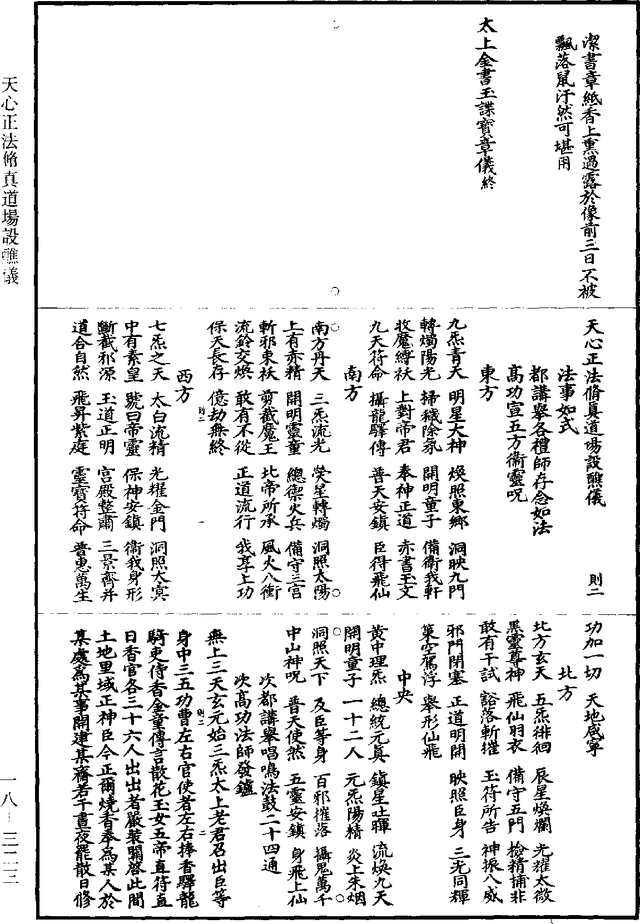 潔書章紙香上熏過露於像前三日不被
飄落鼠汙然可堪用
太上金書玉諜寶章儀終
天心正法脩真道場設醮儀
則二
法事如式
都講舉各禮師存念如法
高功宣五方衞靈呪
東方
九炁青天 明星大神 煥照東鄉 洞映九門
轉燭陽光 掃穢除氛 開明童子 備衛我軒
收魔縛祅 上對帝君 奉神正道 赤書玉文
九天符命 攝龍驛傳 普天安鎮 臣得飛仙
南方
南方丹天 三炁流光 熒星轉燭 洞照太陽
上有赤精 開明靈童 總禦火兵 備守三宫
斬邪束祅 剪截魔王 北帝所承 風火八衝
流鈴交煥 敢有不從 正道流行 我享上功
保天長存 億劫無終
西方
七炁之天 太白流精 光耀金門 洞照太冥
中有素皇 號曰帝靈 保神安鎮 衞我身形
斷截邪源 玉道正明 宫殿整肅 三景齊并
道合自然 飛昇紫庭 靈寶符命 普惠萬生
功加一切 天地咸寧
北方
北方玄天 五炁徘徊 辰星煥爛 光耀太微
黑靈尊神 飛仙羽衣 備守五門 檢精捕非
敢有干試 豁落斬摧 玉符所告 神振八威
邪門閉塞 正道明開 映照臣身 三光同輝
策空駕浮 舉形仙飛
中央
黄中理炁 總統元真 鎮星吐暉 流煥九天
開明童子 一十二人 元炁陽精 炎上朱烟
洞照天下 及臣等身 百邪摧落 攝鬼萬千
中山神呪 普天使然 五靈安鎮 身飛上仙
次都講舉唱鳴法鼓二十四通
次高功法師發鑪
無上三天玄元始三炁太上老君召出臣等
身中三五功曹左右官使者左右捧香驛龍
騎吏侍香金童傳言散花玉女五帝直符直
日香官各三十六人出出者嚴裝關啓此間
土地里域正神臣今正爾燒香奉爲某人於
某處爲某事開建某齋若干晝夜罷散日修
天心正法脩真道場設醮儀
一八-三二三